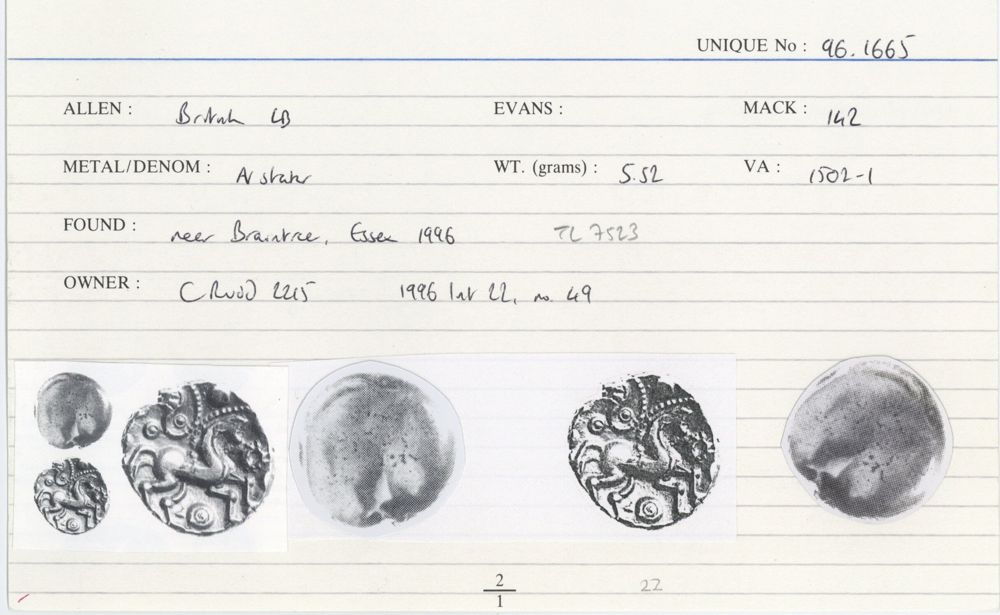 UNIQUE No : 96.1665
ALLEN : British LB EVANS : MACK : 142
METAL/DENOM : AV stater WT. (grams) : 5.52 VA : 1502-1
FOUND : near Braintree, Essex 1996 TL 7523
OWNER : C Rudd 2215 1996 list 22, no. 49
2
1 22